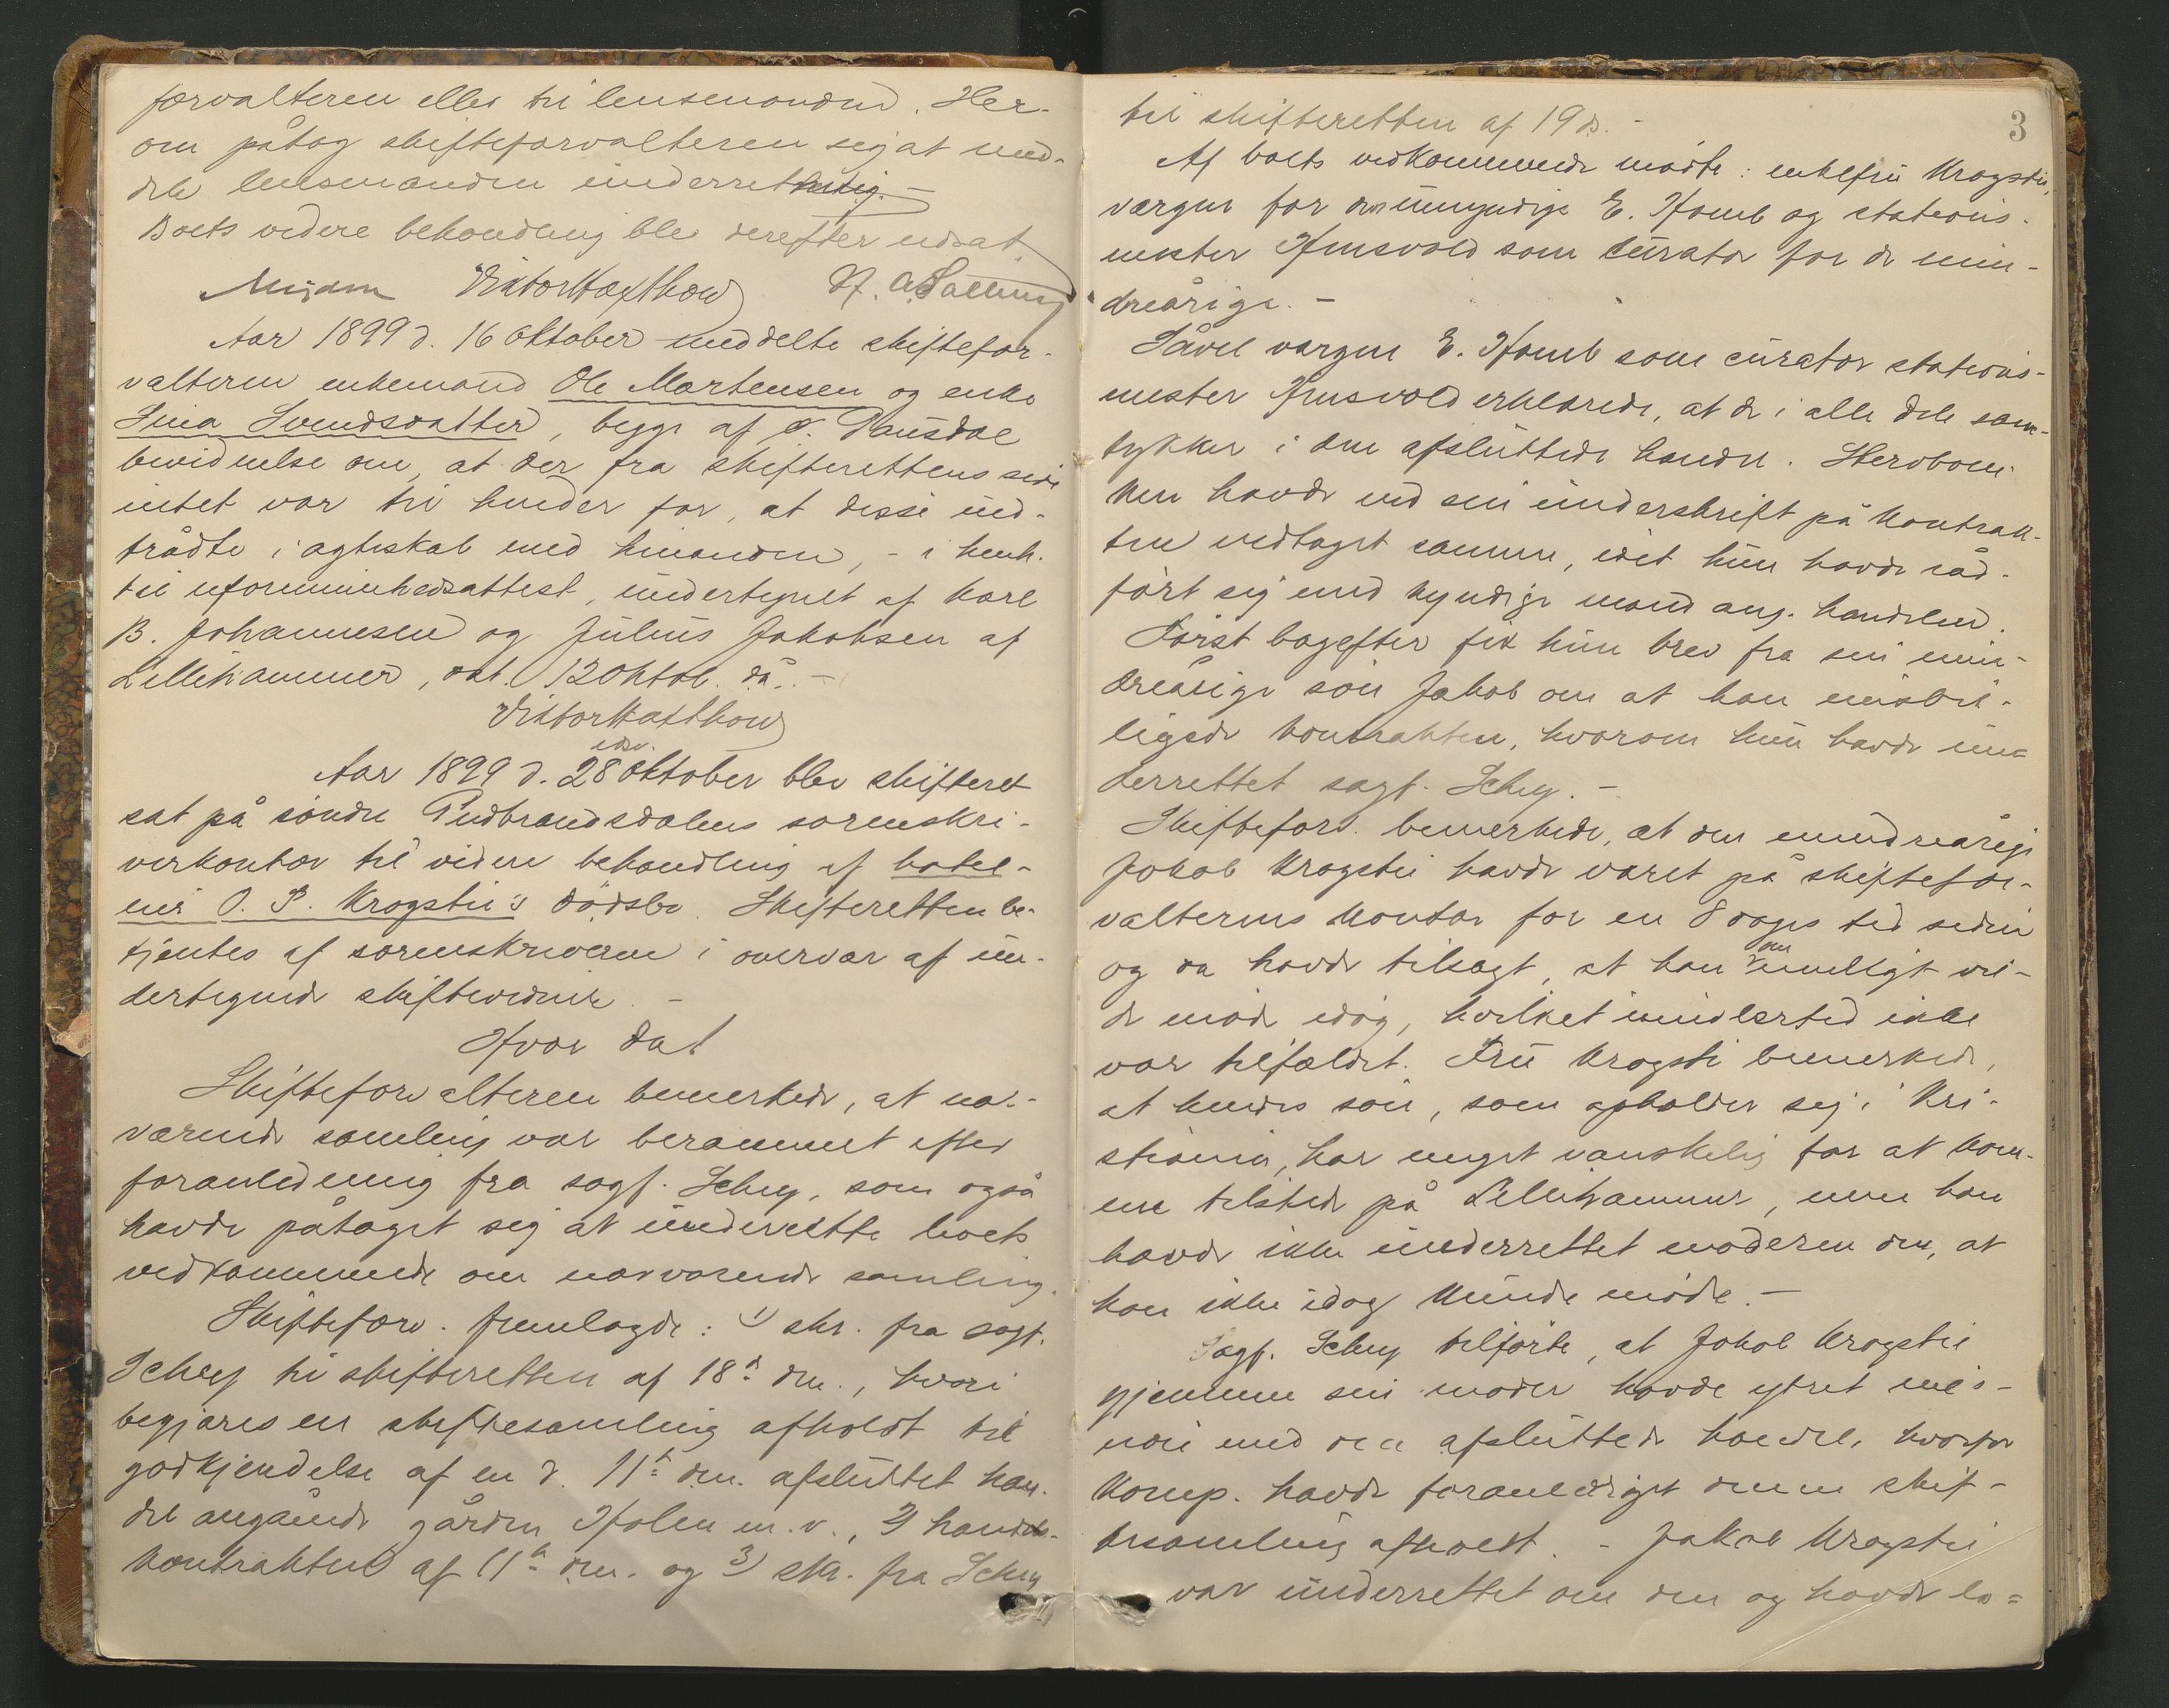 forvalteren eller til lensmanden. Her-
om påtog skifteforvalteren sig at med-
dele lensmanden underretning. -
Boets videre behandling blev derefter udsat.
Victor Wasthow
Aar 1899 d. 16 oktober meddelte skiftefor-
valteren enkemand Ole Martensen og enke
Lina Svendsdatter, begge af
bevidnelse om, at der fra skifterettens side
intet var til hinder for, at disse ind-
trådte i ægteskab med hinanden, - i henh.
til uformuenhedsattest, undertegnet af Karl
B. Johannesen og Julius Jakobsen af
Lillehammer, dat. 12 oktob. då. -
Victor Wasthow
Aar 1899 d. 28 oktober blev skifteret
sat på søndre Gudbrandsdalens sorenskri-
verkontor til videre behandling af hotel-
eier O. P. Krogstie's dødsbo. Skifteretten be-
tjentes af sorenskriveren i overvær af un-
dertegnede skiftevidnir. -
Hvor da!
Skifteforvalteren bemerkede, at nær-
værende samling var berammet efter
foranledning fra sagf. Schey, som også
havde påtaget sig at underrette boets
vedkommende om nærværende samling.
Skifteforv. fremlagde: 1) skr. fra sagf.
Schey til skifteretten af 18de dm., hvori
begjæres en skiftesamling afholdt til
godkjendelse af en d. 11te dm. afsluttet han-
del angående gården Holen m. v., 2) handels-
kontrakten af 11te dm. og 3) skr. fra Schey
3
til skifteretten af 19 ds. -
Af boets vedkommende mødte: enkefru Krogstie,
værgen for den umyndige E. Homb og stations-
mester Hunsvold som curator for de min-
dreårige. -
Såvel værgen E. Homb som curator stations-
mester Hunsvold erklærede, at de i alle dele sam-
tykker i den afsluttede handel. Hersboen-
ken havde ved sin underskrift på kontrak-
ten vedtaget samme, idet hun havde råd-
ført sig med kyndige mænd ang. handelen.
Først bagefter fik hun brev fra sin min-
dreårige søn Jakob om at han misbil-
ligede kontrakten, hvorom hun havde un-
derrettet sagf. Schey. -
Skifteforv. bemerkede, at den mindreårige
Jakob Krogstie havde været på skiftefor-
valterens kontor for en 8 dages tid siden
og da havde tilsagt, at han om muligt vil-
de møde idag, hvilket imidlertid ikke
var tilfældet. Fru Krogstie bemerkede,
at hendes søn, som opholder sig i Kri-
stiania, har meget vanskelig for at kom-
me tilstede på Lillehammer, men han
havde ikke underrettet moderen om, at
han ikke idag kunde møde. -
Sagf. Schey tilførte, at Jakob Krogstie
gjennem sin moder havde ytret mis-
nøie med den afsluttede handel, hvorfor
komp. havde foranlediget denne skif-
tesamling afholdt. - Jakob Krogstie
var underrettet om den og havde lo-